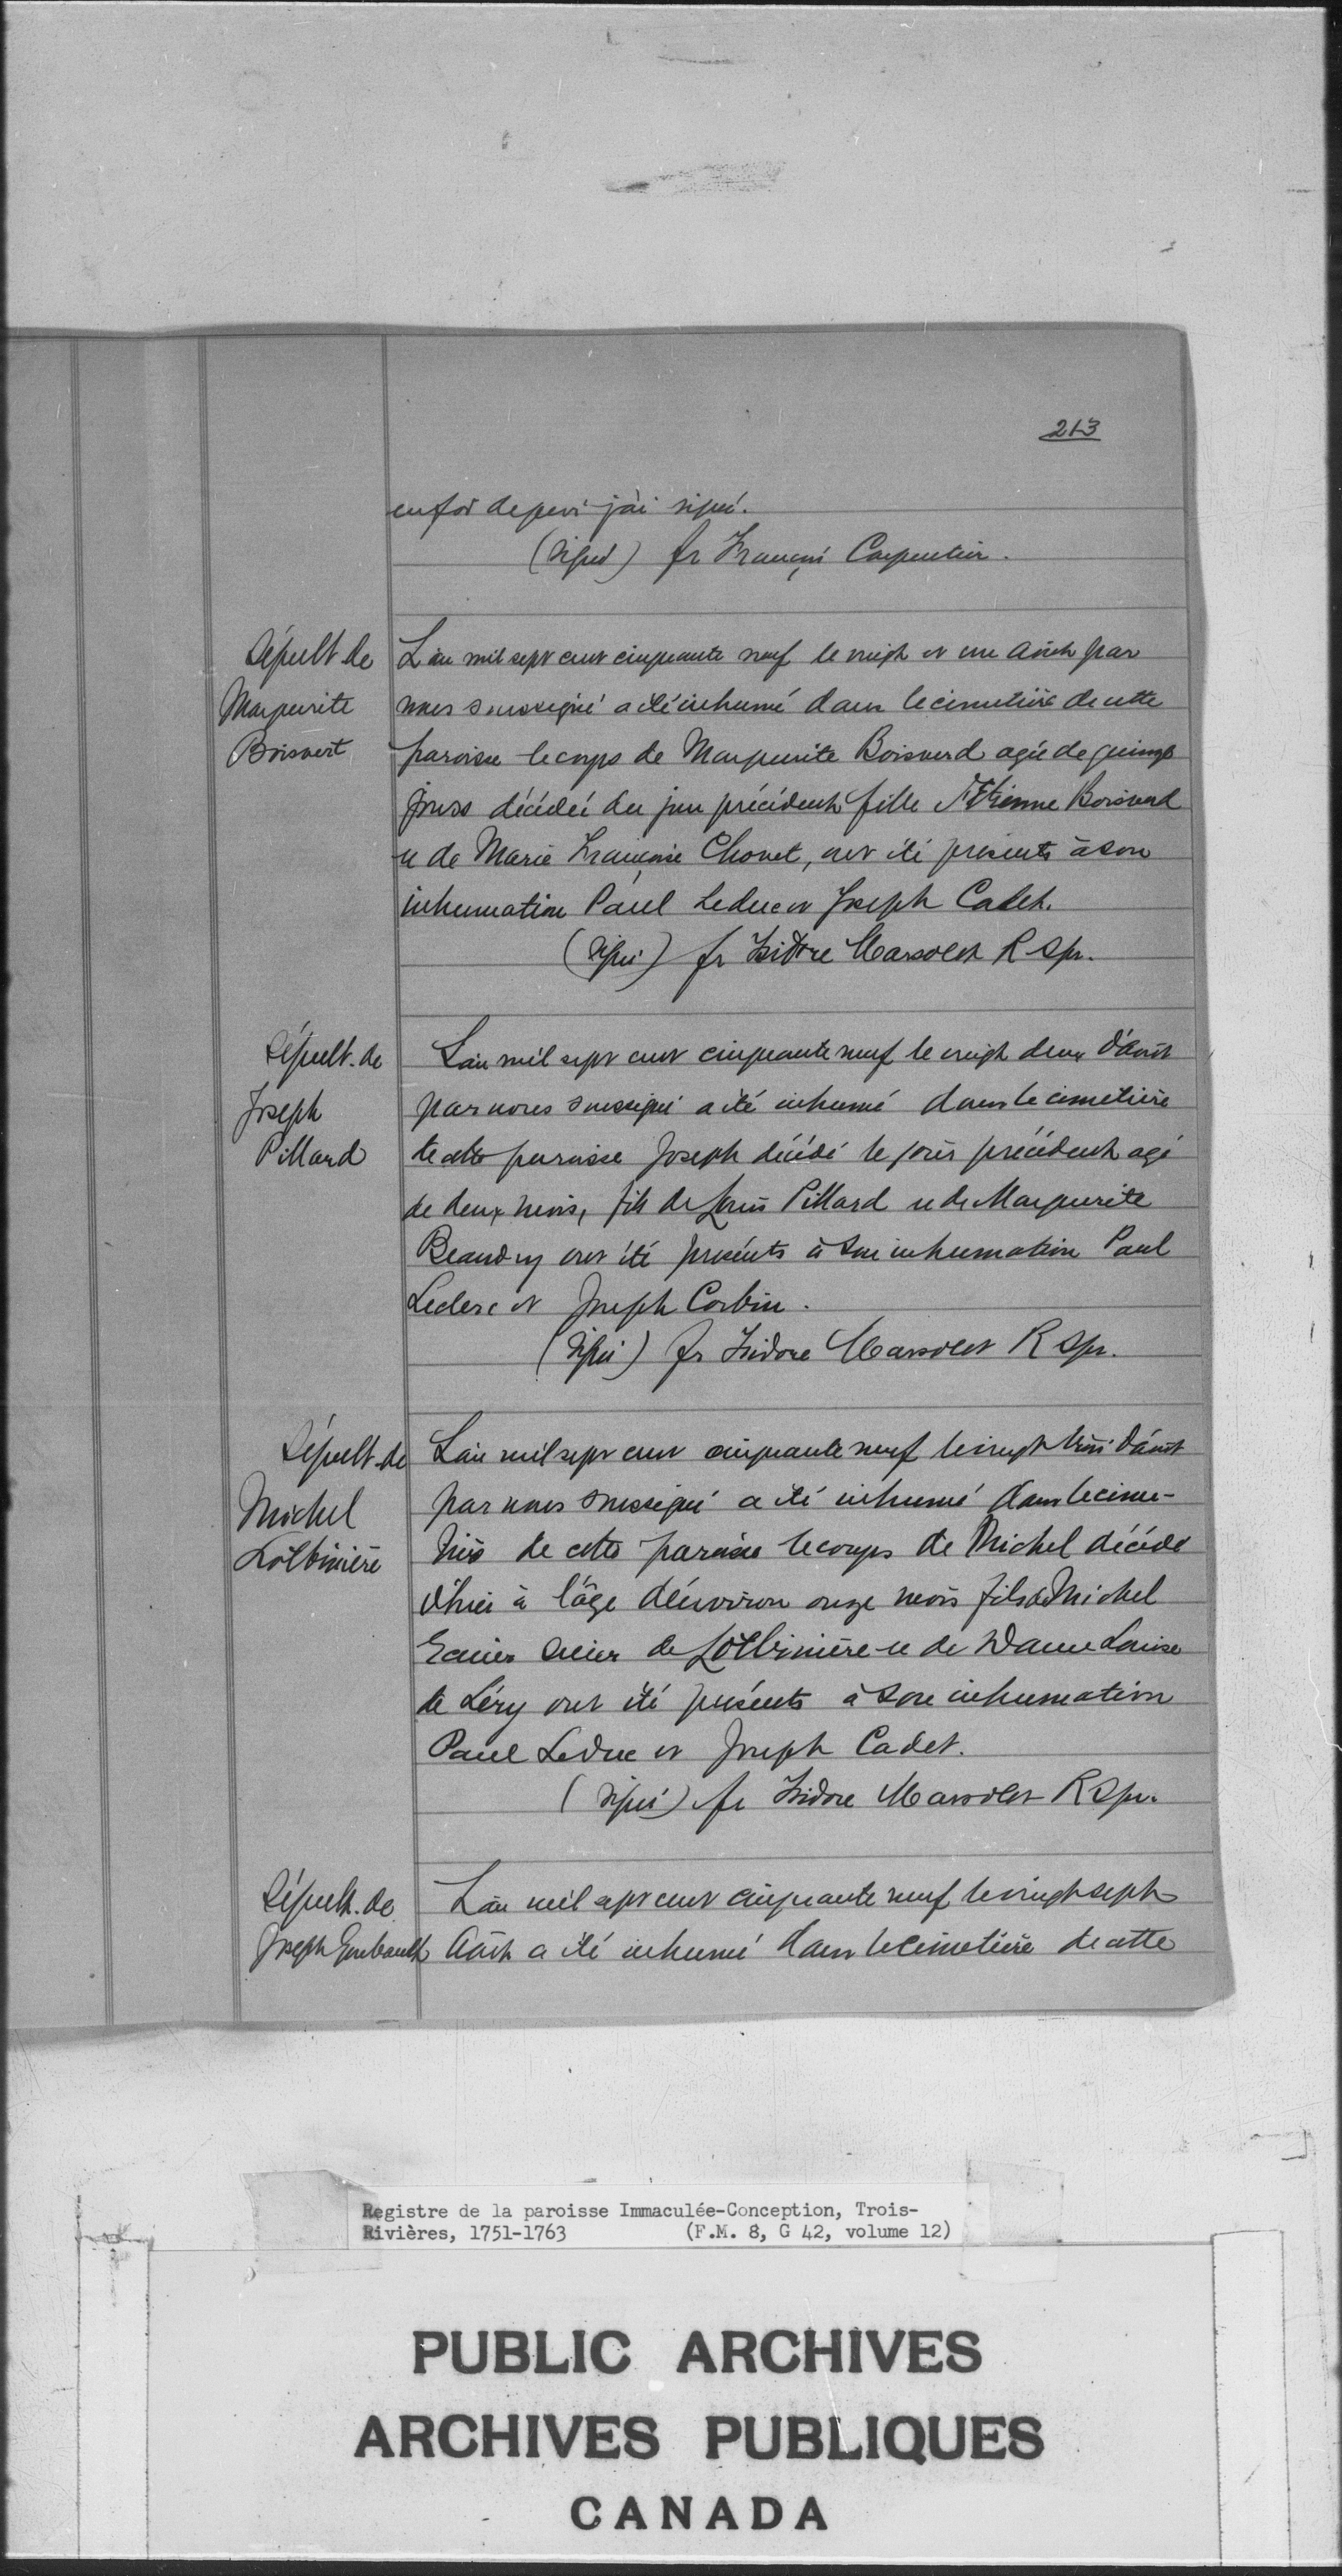 213
en foi de quoi j'ai signé.
(Signé) fr François Carpentier.
Sépult de
Marguerite
Boisvert
L'an mil sept cent cinquante neuf le vingt et un Août par
nous soussigné a été inhumé dans le cimetière de cette
paroisse le corps de Marguerite Boisverd agée de quinze
jours décédée du jour précédent fille d'Etienne Boisverd
et de Marie Françoise Chovet, ont été présents à son
inhumation Paul Leduc et Joseph Cadet.
(Signé) fr Isidore Marsolet R Spr.
Sépult. de
Joseph
Pillard
L'an mil sept cent cinquante neuf le vingt deux d'Août
par nous soussigné a été inhumé dans le cimetière
de cette paroisse Joseph décédé le jour précédent agé
de deux mois, fils de Louis Pillard et de Marguerite
Beaudry ont été présents à son inhumation Paul
Leclerc et Joseph Corbin.
(Signé) fr Isidore Marsolet R Spr.
Sépult de
Michel
Lotbinière
L'an mil sept cent cinquante neuf le vingt trois d'août
par nous soussigné a été inhumé dans le cime-
tière de cette paroisse le corps de Michel décédé
d'hier à l'âge d'environ onze mois fils de Michel
Ecuier Sieur de Lotbinière et de Dame Louise
de Léry ont été présents à son inhumation
Paul Leduc et Joseph Cadet.
(Signé) fr Isidore Marsolet R Spr.
Sépult. de
Joseph
L'an mil sept cent cinquante neuf le vingt sept
Août a été inhumé dans le cimetière de cette
Registre de la paroisse Immaculée-Conception, Trois-
Rivières, 1751-1763 (F.M. 8, G 42, volume 12)
PUBLIC ARCHIVES
ARCHIVES PUBLIQUES
CANADA